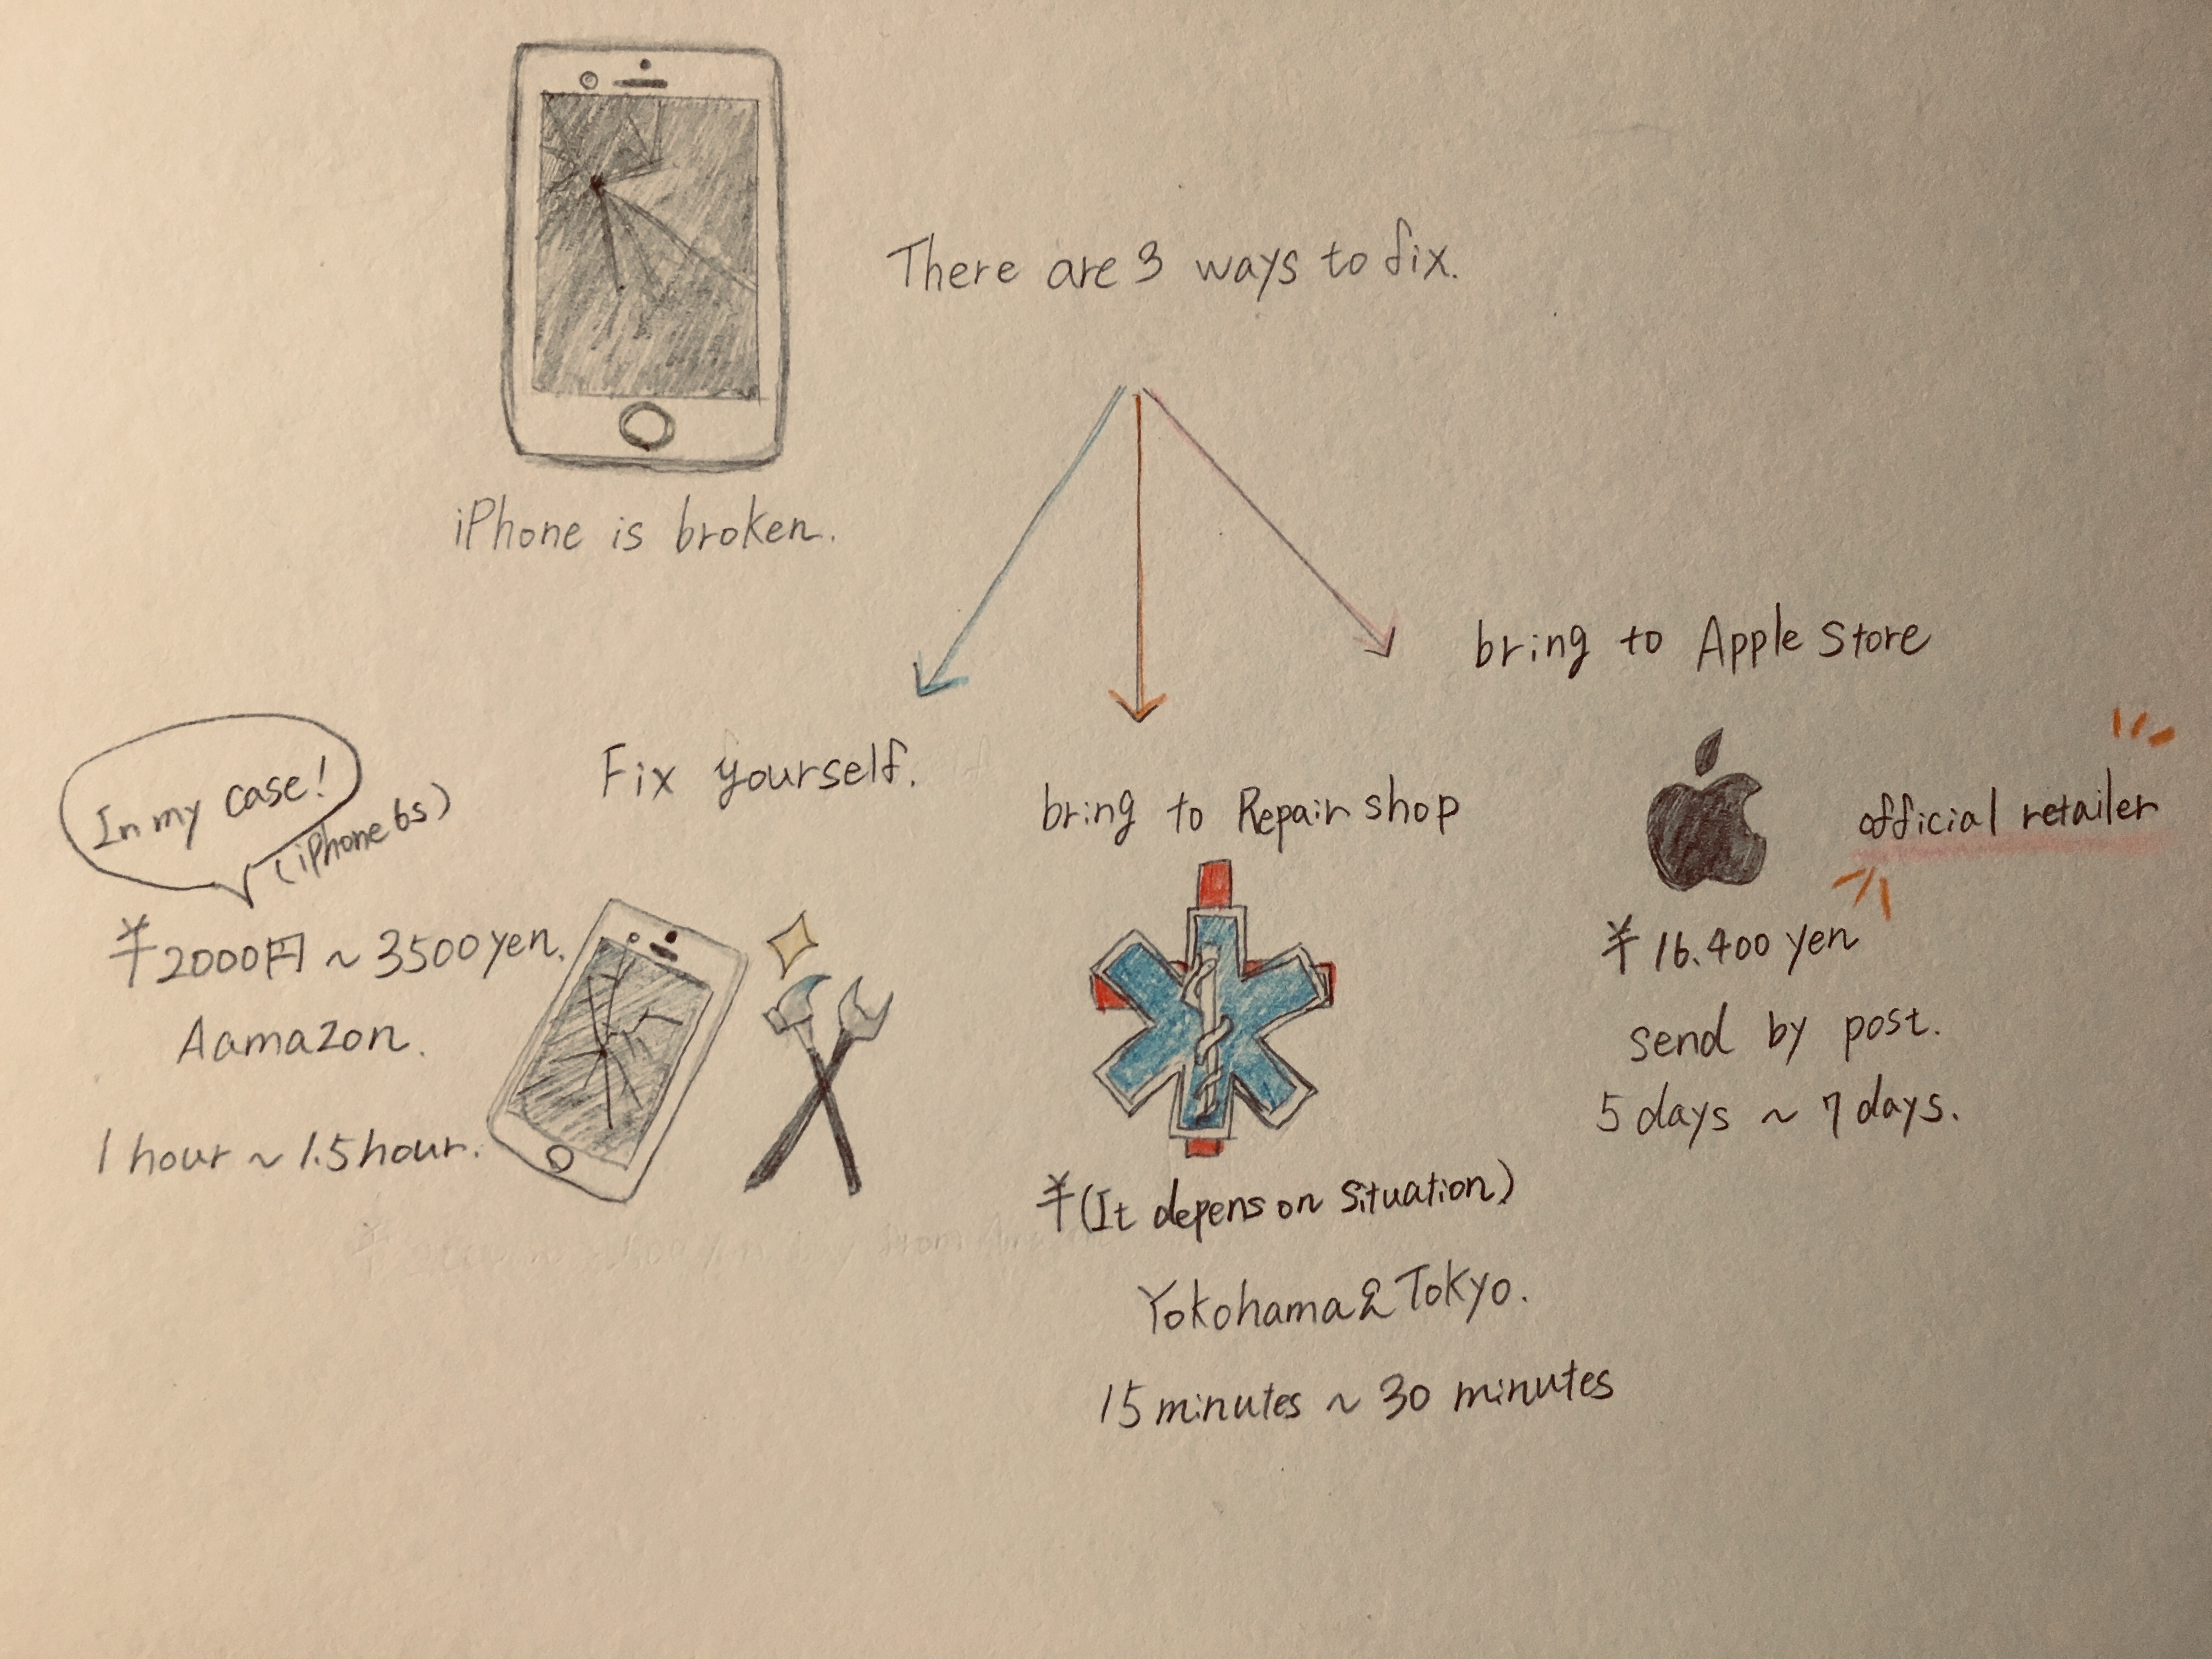 There are 3 ways to fix.
iPhone is broken.
bring to Apple Store
Fix yourself.
bring to Repair shop
official retailer
In my case!
(iPhone 6s)
¥2000円 ~ 3500 yen.
Aamazon.
1 hour ~ 1.5 hour.
¥ (It depens on situation)
Yokohama & Tokyo.
15 minutes ~ 30 minutes
¥ 16.400 yen
send by post.
5 days ~ 7 days.